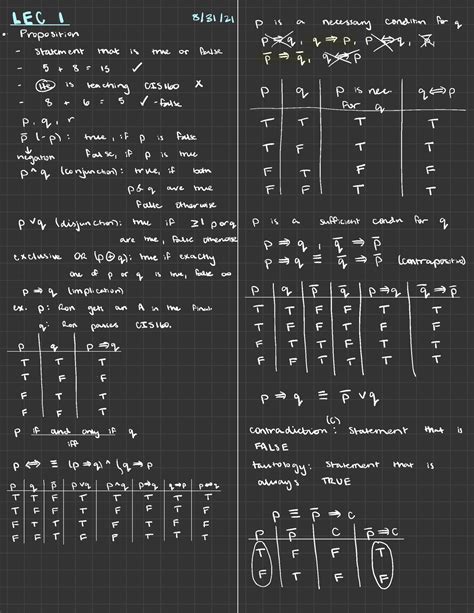 LEC 1 8/31/21
• Proposition
- Statement that is true or false
- 5 + 8 = 13 ✓
- He is teaching CIS160 ✗
- 8 + 6 = 5 ✓ - false
p, q, r
p̄ (¬p): true, if p is false
negation False, if p is true
p ^ q (conjunction): true, if both
p & q are true
False otherwise
p ∨ q (disjunction): true if ≥1 p or q
are true, False otherwise
exclusive OR (p ⊕ q): true if exactly
one of p or q is true, false
p ⇒ q (implication)
ex. p: Ron gets an A in the final
q: Ron passes CIS160.
p q p ⇒ q
T T T
T F F
F T T
F F T
p if and only if q
iff
p ⇔ ≡ (p ⇒ q) ^ (q ⇒ p
p q p̄ p∨q p^q p⇒q q⇒p p⇔q
T T F T T T T T
T F F T F F T F
F T T T F T F F
F F T F F T T T
p is a necessary condition for q
p ⇒ q, q ⇒ p,
p ⇒ q,
p q p is nec for q q ⇔ p
T T T T
T F T T
F T F F
F F T T
p is a sufficient condn for q
p ⇒ q, q̄ ⇒ p̄
p ⇒ q ≡ q̄ ⇒ p̄ (contrapositive)
p q p̄ q̄ p⇒q q̄ ⇒ p̄
T T F F T T
T F F T F F
F T T F T T
F F T T T T
p ⇒ q ≡ p̄ ∨ q
(C)
contradiction: statement that is
FALSE
tautology: statement that is
always TRUE
p ≡ p̄ ⇒ C
p p̄ C p̄ ⇒ C
T F F T
F T F F